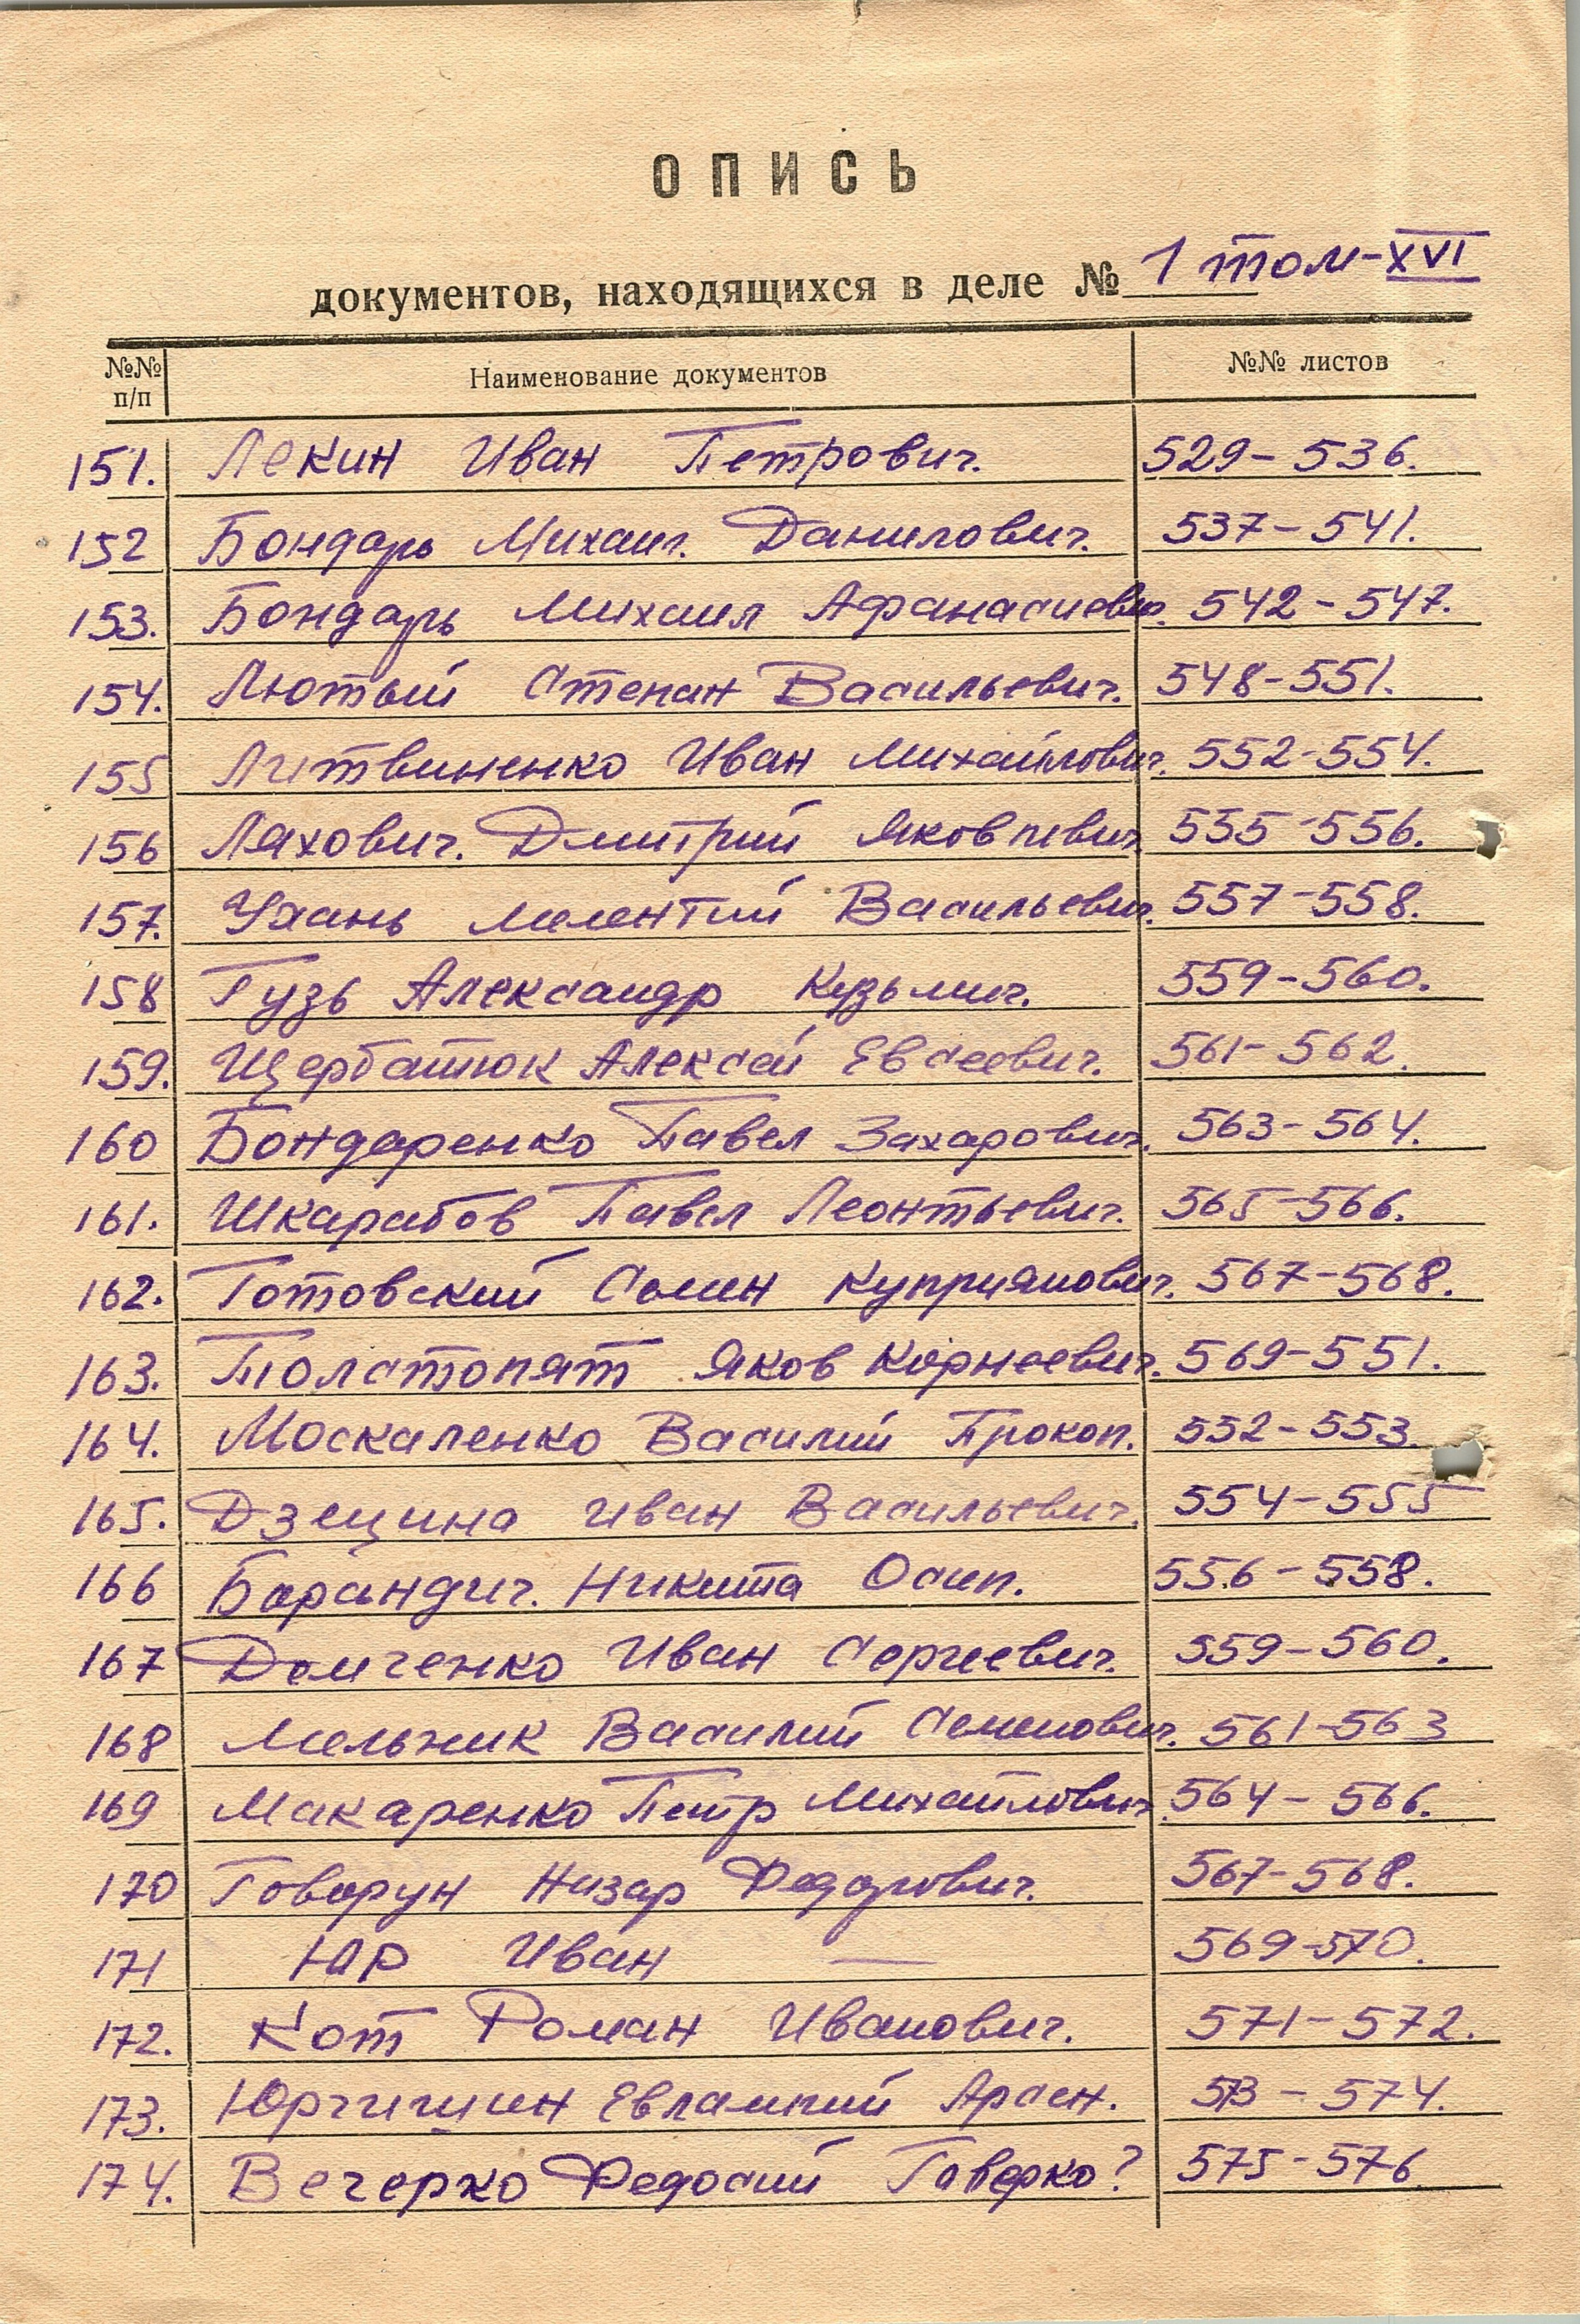 ОПИСЬ
документов, находящихся в деле № 1 том-XVI
№№ п/п Наименование документов №№ листов
151. Лекин Иван Петрович. 529-536.
152 Бондарь Михаил. Данилович. 537-541.
153. Бондарь Михаил Афанасиевич. 542-547.
154. Лютый Степан Васильевич. 548-551.
155 Литвиненко Иван Михайлович. 552-554.
156 Ляхович. Дмитрий Яковлевич 555-556.
157. Ухань Мелентий Васильевич. 557-558.
158 Гузь Александр Кузьмич. 559-560.
159. Щербатюк Алексей Евсеевич. 561-562.
160 Бондаренко Павел Захарович. 563-564.
161. Шкарабов Павел Леонтьевич. 565-566.
162. Готовский Семен Куприянович. 567-568.
163. Толстопят Яков Корнеевич. 569-551.
164. Москаленко Василий Прокоп. 552-553.
165. Дзецина Иван Васильевич. 554-555
166 Барандич. Никита Осип. 556-558.
167 Демченко Иван Сергеевич. 559-560.
168 Мельник Василий Семенович. 561-563
169 Макаренко Петр Михайлович. 564-566.
170 Говорун Назар Федорович. 567-568.
171 Юр Иван — 569-570.
172. Кот Роман Иванович. 571-572.
173. Юрчишин Евлампий Арсен. 573-574.
174. Вечерко Федосий Гаверко? 575-576